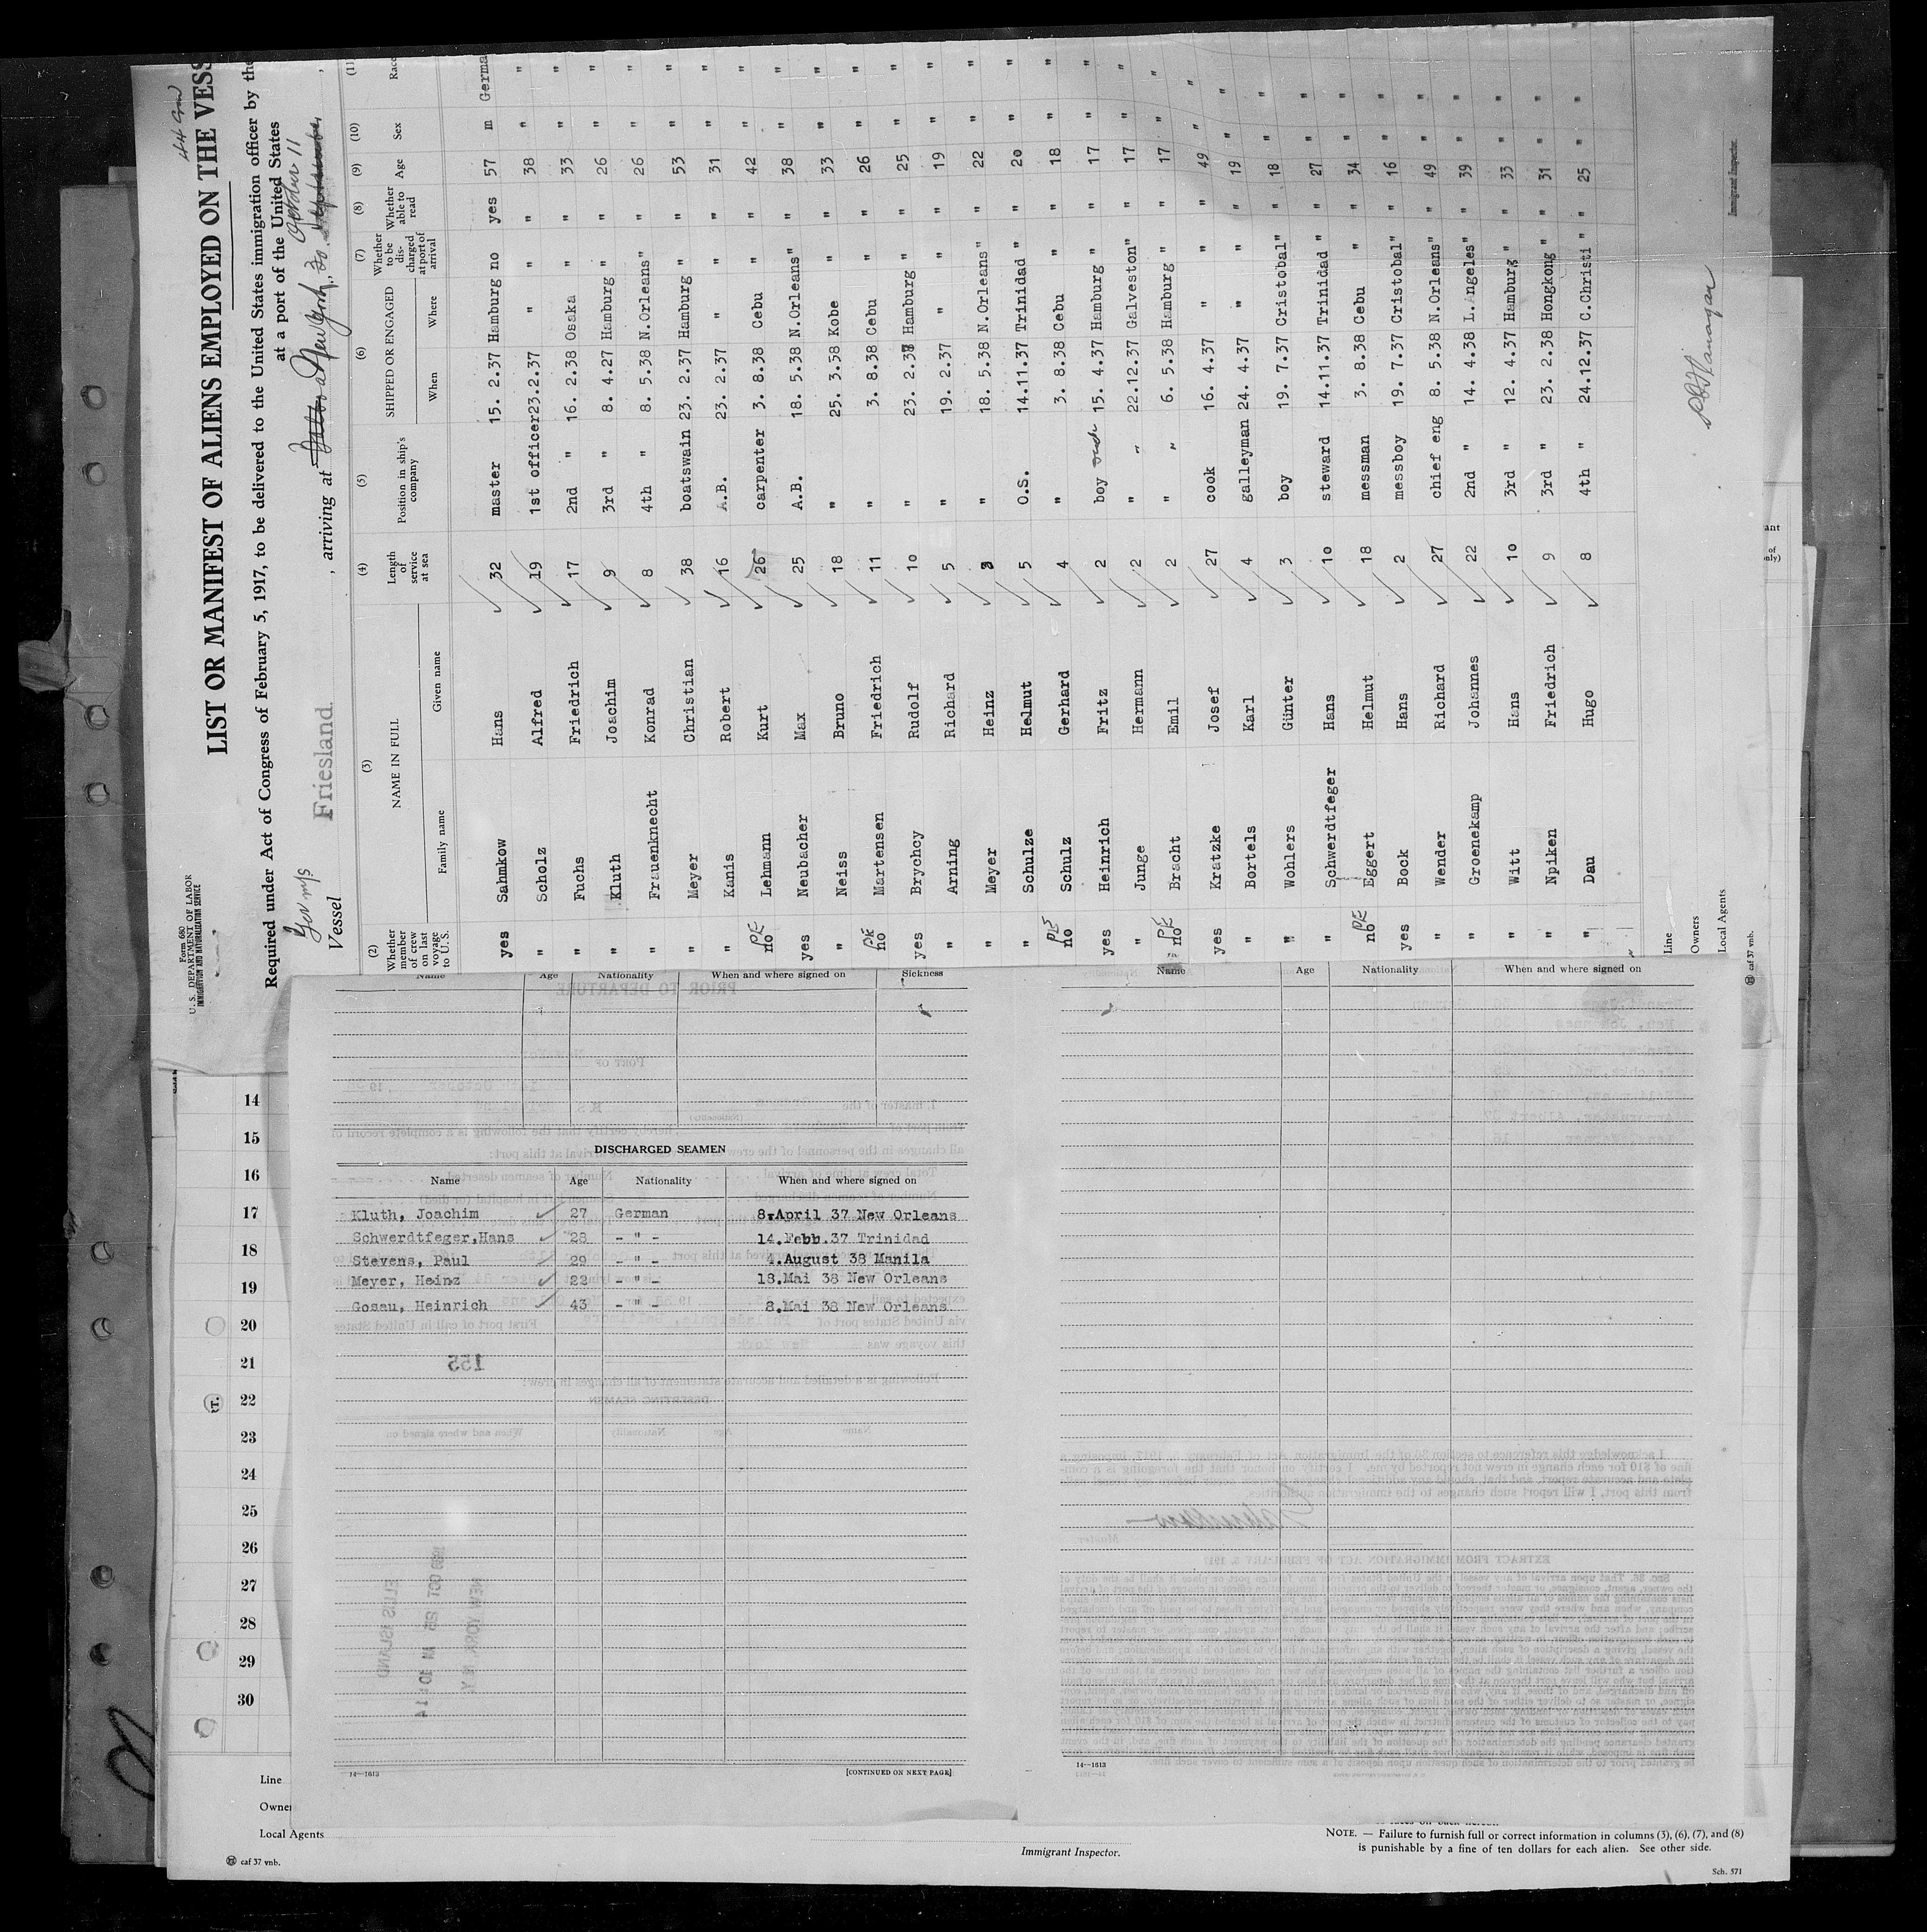 Form 680
U. S. DEPARTMENT OF LABOR
IMMIGRATION AND NATURALIZATION SERVICE
LIST OR MANIFEST OF ALIENS EMPLOYED ON THE VESS
Required under Act of Congress of February 5, 1917, to be delivered to the United States immigration officer by the
at a port of the United States
Ger m/s
Vessel Friesland. , arriving at New York, October 11
(2) (3) (4) (5) (6) (7) (8) (9) (10) (11)
Whether member of crew on last voyage to U. S. NAME IN FULL Length of service at sea Position in ship's company SHIPPED OR ENGAGED Whether to be discharged at port of arrival Whether able to read Age Sex Race
Family name Given name When Where
yes Sahmkow Hans 32 master 15. 2.37 Hamburg no yes 57 m Germa
" Scholz Alfred 19 1st officer 23.2.37 " " " 38 " "
" Fuchs Friedrich 17 2nd " 16. 2.38 Osaka " " 33 " "
" Kluth Joachim 9 3rd " 8. 4.27 Hamburg " " 26 " "
" Frauenknecht Konrad 8 4th " 8. 5.38 N.Orleans " " 26 " "
" Meyer Christian 38 boatswain 23. 2.37 Hamburg " " 53 " "
" Kanis Robert 16 A.B. 23. 2.37 " " " 31 " "
no Lehmann Kurt 26 carpenter 3. 8.38 Cebu " " 42 " "
yes Neubacher Max 25 A.B. 18. 5.38 N.Orleans " " 38 " "
" Neiss Bruno 18 " 25. 3.58 Kobe " " 33 " "
no Martensen Friedrich 11 " 3. 8.38 Cebu " " 26 " "
yes Brychcy Rudolf 10 " 23. 2.37 Hamburg " " 25 " "
" Arning Richard 5 " 19. 2.37 " " " 19 " "
" Meyer Heinz 3 " 18. 5.38 N.Orleans " " 22 " "
" Schulze Helmut 5 O.S. 14.11.37 Trinidad " " 20 " "
no Schulz Gerhard 4 " 3. 8.38 Cebu " " 18 " "
yes Heinrich Fritz 2 boy deck 15. 4.37 Hamburg " " 17 " "
" Junge Hermann 2 " " 22.12.37 Galveston " " 17 " "
no Bracht Emil 2 " " 6. 5.38 Hamburg " " 17 " "
yes Kratzke Josef 27 cook 16. 4.37 " " " 49 " "
" Bortels Karl 4 galleyman 24. 4.37 " " " 19 " "
" Wohlers Günter 3 boy 19. 7.37 Cristobal " " 18 " "
" Schwerdtfeger Hans 10 steward 14.11.37 Trinidad " " 27 " "
no Eggert Helmut 18 messman 3. 8.38 Cebu " " 34 " "
yes Bock Hans 2 messboy 19. 7.37 Cristobal " " 16 " "
" Wender Richard 27 chief eng 8. 5.38 N.Orleans " " 49 " "
" Groenekamp Johannes 22 2nd " 14. 4.38 L.Angeles " " 39 " "
" Witt Hans 10 3rd " 12. 4.37 Hamburg " " 33 " "
" Npiken Friedrich 9 3rd " 23. 2.38 Hongkong " " 31 " "
" Dau Hugo 8 4th " 24.12.37 C.Christi " " 25 " "
Line
Owners
Local Agents
Immigrant Inspector.
caf 37 vnb.
Name Age Nationality When and where signed on Sickness
Name Age Nationality When and where signed on
DISCHARGED SEAMEN
Name Age Nationality When and where signed on
Kluth, Joachim 27 German 8.April 37 New Orleans
Schwerdtfeger,Hans 28 - " - 14.Febb.37 Trinidad
Stevens, Paul 29 - " - 4.August 38 Manila
Meyer, Heinz 22 - " - 18.Mai 38 New Orleans
Gosau, Heinrich 43 - " - 8.Mai 38 New Orleans
155
14—1613 [CONTINUED ON NEXT PAGE]
14—1613
14
15
16
17
18
19
20
21
22
23
24
25
26
27
28
29
30
Line
Owne
Local Agents
Immigrant Inspector.
NOTE. — Failure to furnish full or correct information in columns (3), (6), (7), and (8)
is punishable by a fine of ten dollars for each alien. See other side.
caf 37 vnb.
Sch. 571